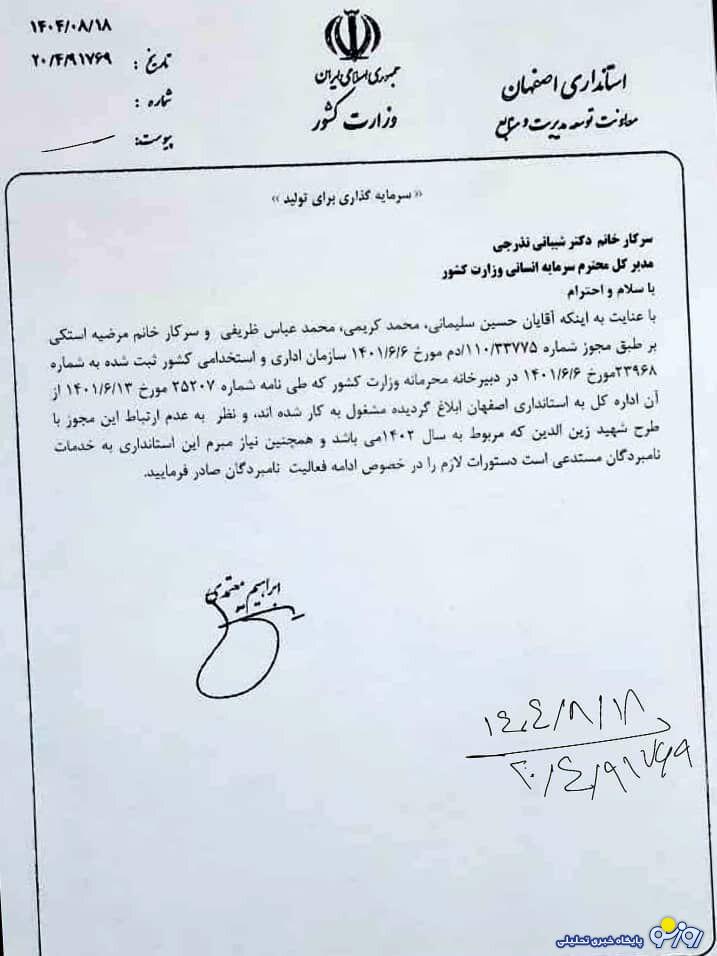 ۱۴۰۴/۰۸/۱۸
تاریخ :
۲۰/۴/۹۱۷۶۹
شماره :
پیوست:
جمهوری اسلامی ایران
وزارت کشور
استانداری اصفهان
معاونت توسعه مدیریت و منابع
« سرمایه گذاری برای تولید »
سرکار خانم دکتر شیبانی تذرجی
مدیر کل محترم سرمایه انسانی وزارت کشور
با سلام و احترام
با عنایت به اینکه آقایان حسین سلیمانی، محمد کریمی، محمد عباس ظریفی و سرکار خانم مرضیه استکی
بر طبق مجوز شماره ۱۱۰/۳۳۷۷۵/دم مورخ ۱۴۰۱/۶/۶ سازمان اداری و استخدامی کشور ثبت شده به شماره
۲۳۹۶۸مورخ ۱۴۰۱/۶/۶ در دبیرخانه محرمانه وزارت کشور که طی نامه شماره ۲۵۲۰۷ مورخ ۱۴۰۱/۶/۱۳ از
آن اداره کل به استانداری اصفهان ابلاغ گردیده مشغول به کار شده اند، و نظر به عدم ارتباط این مجوز با
طرح شهید زین الدین که مربوط به سال ۱۴۰۲می باشد و همچنین نیاز مبرم این استانداری به خدمات
نامبردگان مستدعی است دستورات لازم را در خصوص ادامه فعالیت نامبردگان صادر فرمایید.
ابراهیم معتمدی
۱۴۰۴/۸/۱۸
۲۰/۴/۹۱۷۶۹
روزنو
پایگاه خبری تحلیلی